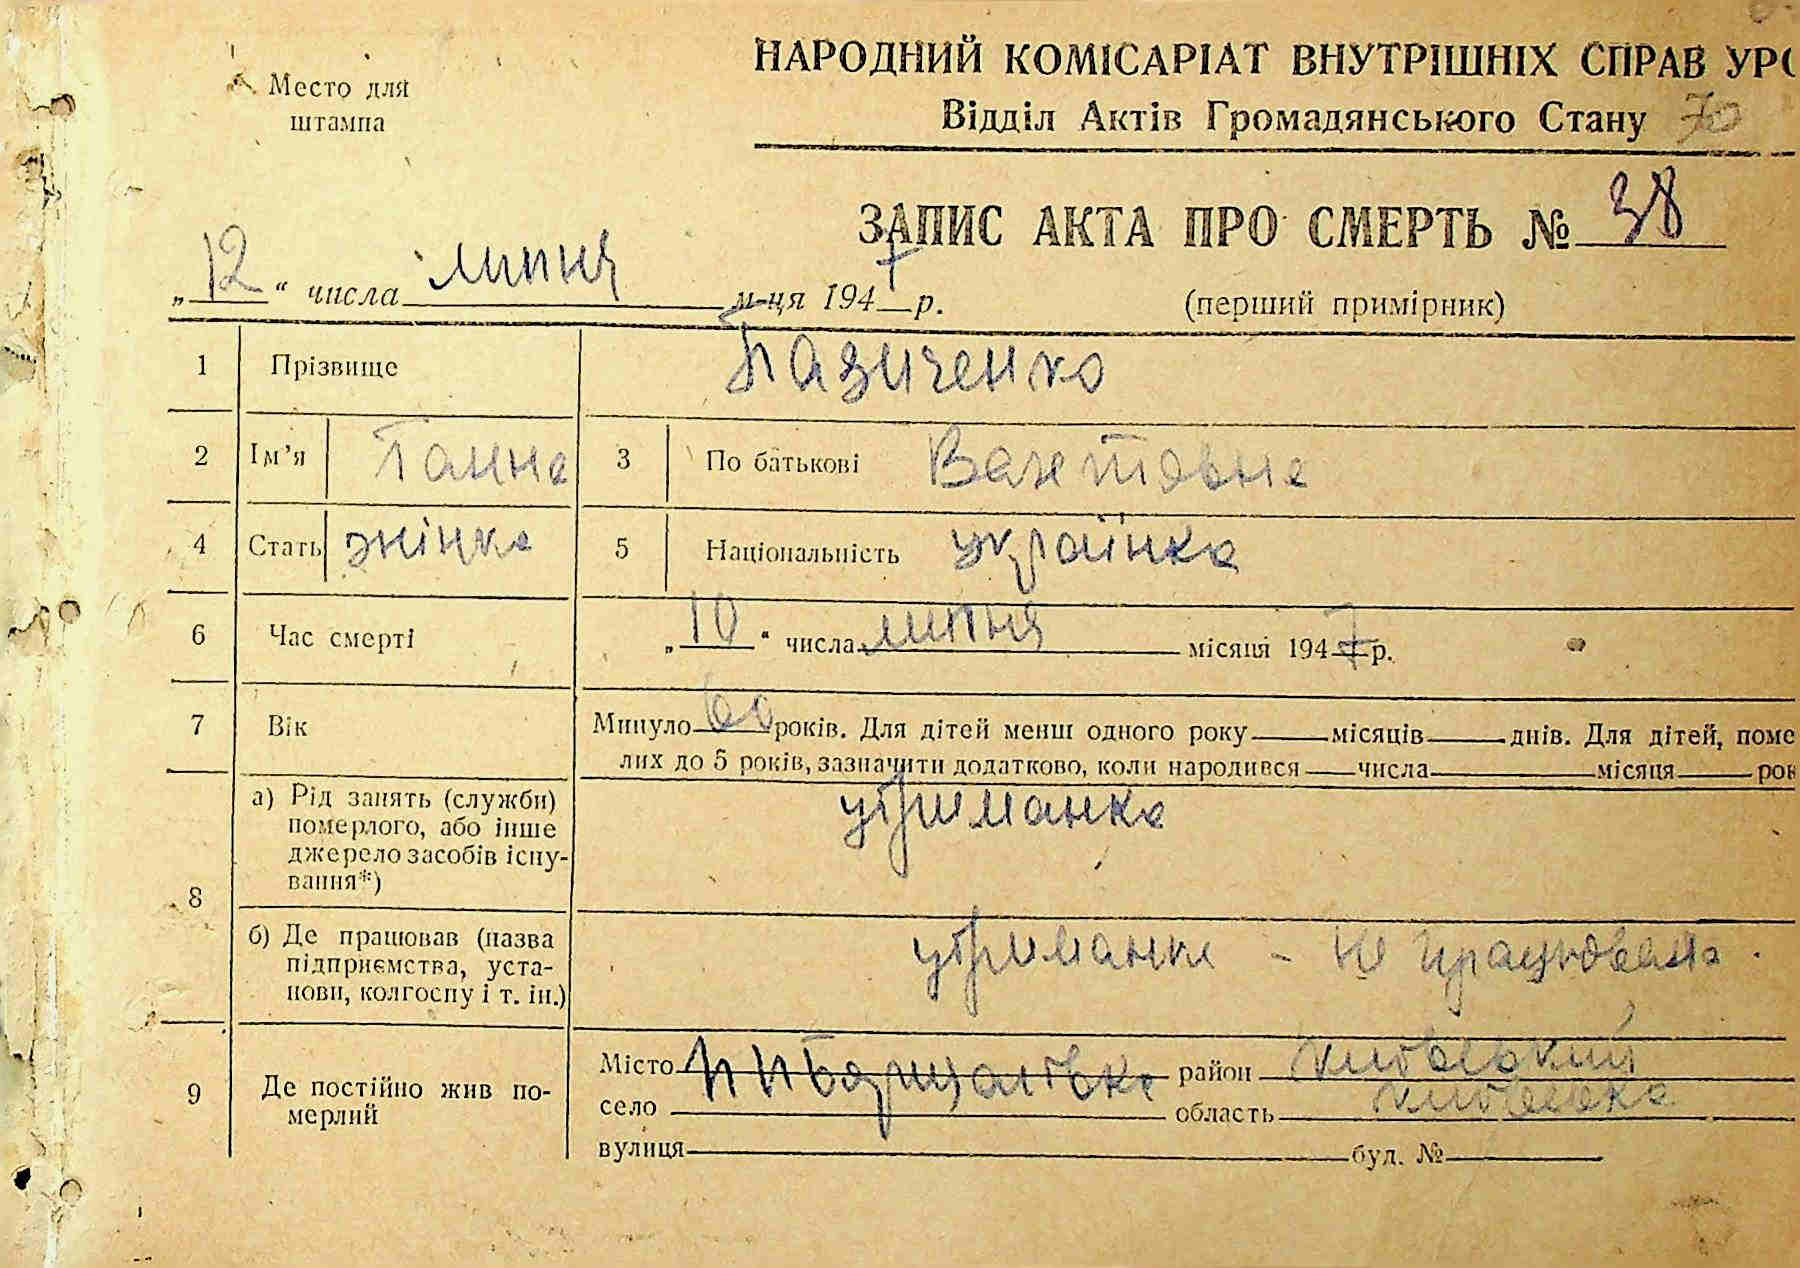 НАРОДНИЙ КОМІСАРІАТ ВНУТРІШНІХ СПРАВ УРС
Место для штампа
Відділ Актів Громадянського Стану 70
ЗАПИС АКТА ПРО СМЕРТЬ № 38
„12“ числа липня м-ця 1947 р. (перший примірник)
1 Прізвище Пазиченко
2 Ім’я Ганна 3 По батькові
4 Стать жінка 5 Національність українка
6 Час смерті „10“ числа липня місяця 1947 р.
7 Вік Минуло 60 років. Для дітей менш одного року — місяців — днів. Для дітей, поме
лих до 5 років, зазначити додатково, коли народився — числа — місяця — рок
8 а) Рід занять (служби) утриманка
померлого, або інше
джерело засобів існу-
вання*)
б) Де працював (назва утриманка - не працювала.
підприємства, уста-
нови, колгоспу і т. ін.)
9 Де постійно жив по-
мерлий
Місто район
село область
вулиця буд. №